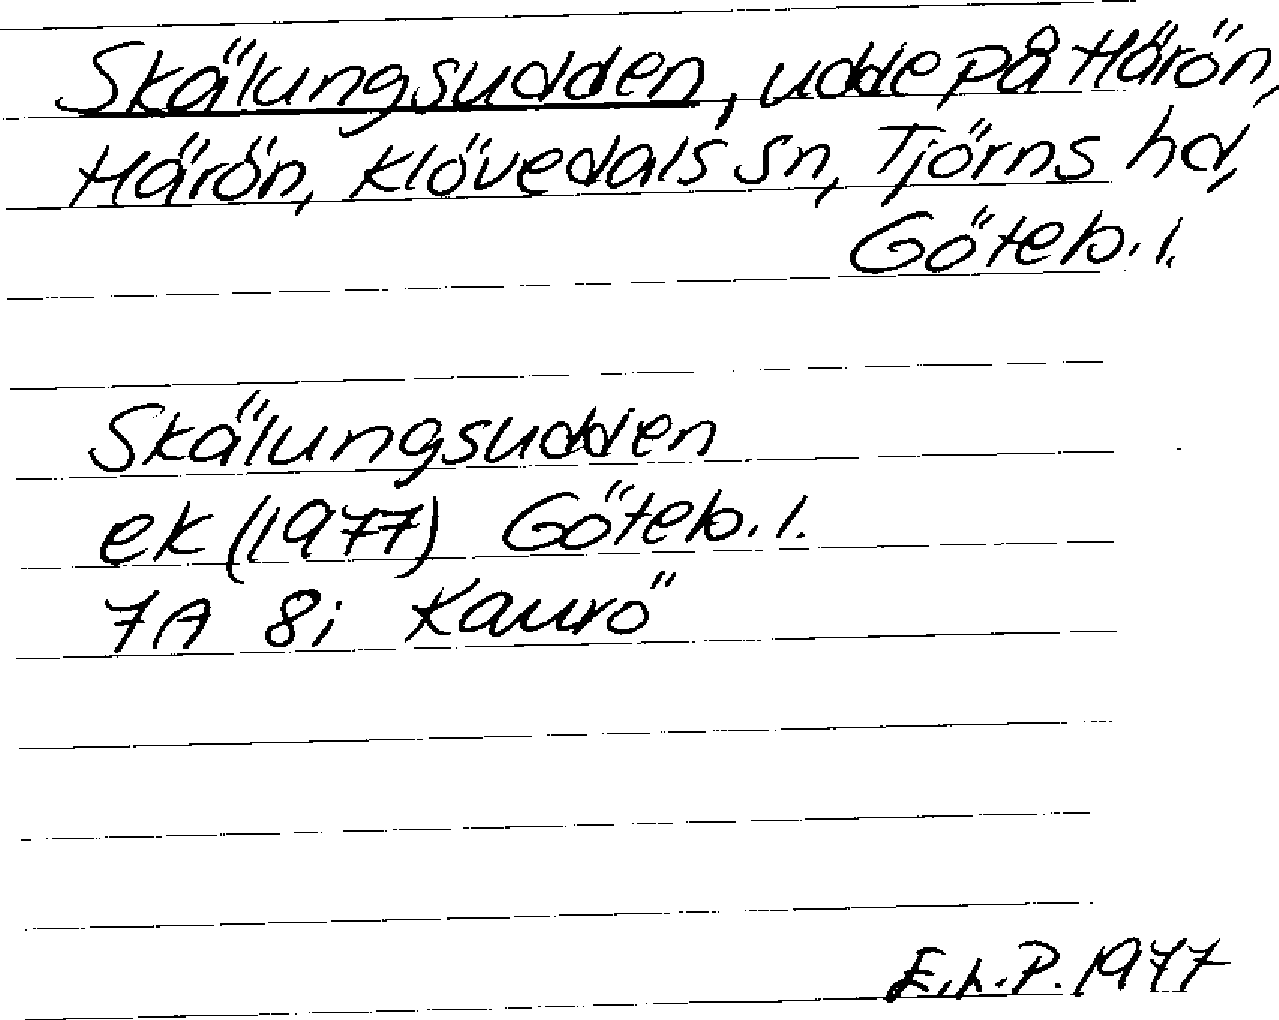 Skälungsudden, udde på Härön,
Härön, Klövedals sn, Tjörns hd,
Göteb. l.
Skälungsudden
ek (1977) Göteb. l.
7A 8i Kaurö
E.h.P. 1977